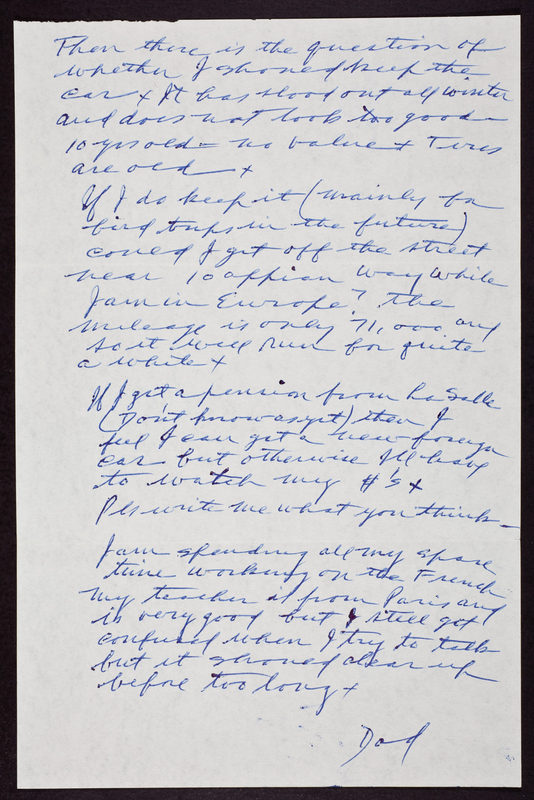 Then there is the question of
whether I should keep the
car + It has stood out all winter
and does not look too good -
10 yrs old - no value + Tires
are old +
If I do keep it (mainly for
bird trips in the future)
could I get off the street
near 10 appian Way while
I am in Europe? the
mileage is only 71,000 and
so it will run for quite
a while +
If I get a pension from La Salle
(Don't know as yet) then I
feel I can get a new foreign
car but otherwise I'll have
to watch my #'s +
Pls write me what you think -
I am spending all my spare
time working on the French
My teacher is from Paris and
is very good but I still get
confused when I try to talk
but it should clear up
before too long +
Dad